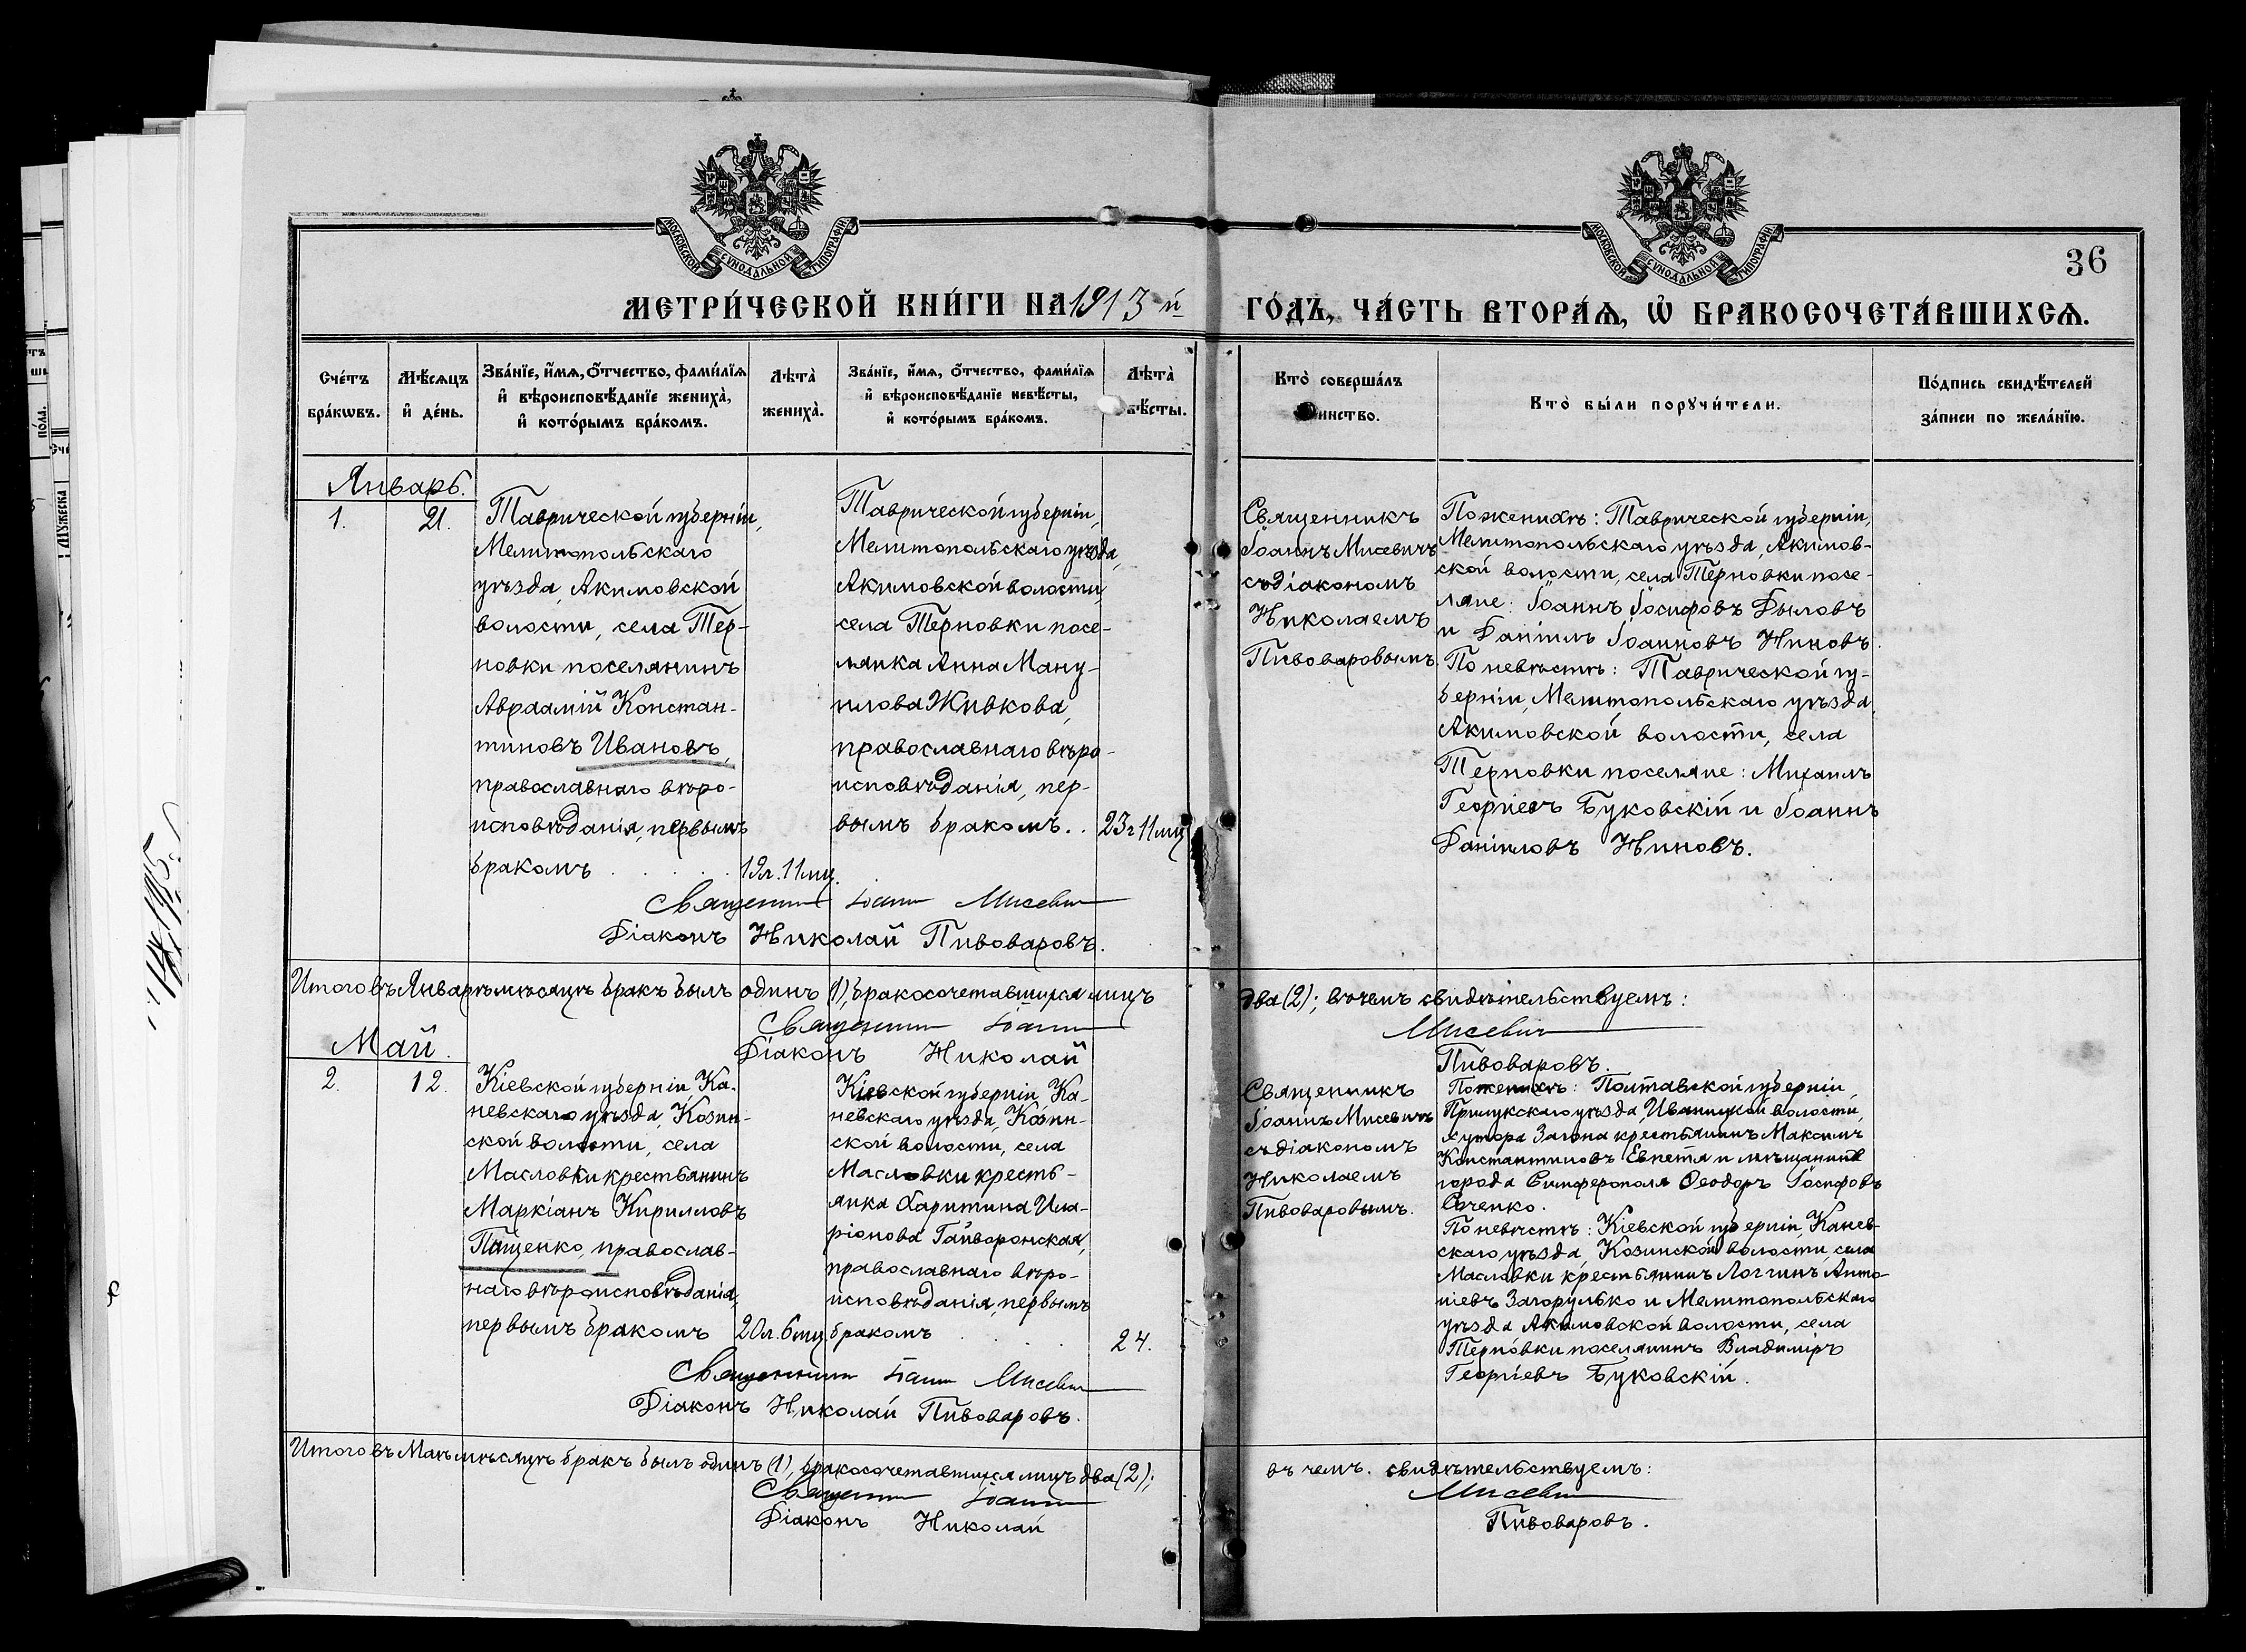 36
МЕТРИ́ЧЕСКОЙ КНИ́ГИ НА 1913-й ГО́ДЪ, ЧА́СТЬ ВТОРА́Ѧ, Ѡ҆ БРАКОСОЧЕТА́ВШИХСѦ.
Сче́тъ
бра́кѡвъ.
Мѣ́сѧцъ
и҆ де́нь.
Зва́нїе, и҆́мѧ, о҆́тчество, фами́лїѧ
и҆ вѣроисповѣ́данїе жениха̀,
и҆ кото́рымъ бра́комъ.
Лѣта̀
жениха̀.
Зва́нїе, и҆́мѧ, о҆́тчество, фами́лїѧ
и҆ вѣроисповѣ́данїе невѣ́сты,
и҆ кото́рымъ бра́комъ.
Лѣта̀
бѣ́сты.
Кто̀ соверша́лъ
инство.
Кто̀ бы́ли порꙋчи́тели.
По́дпись свидѣ́телей
за́писи по жела́нїю.
Январь.
1.
21.
Таврической губерніи,
Мелитопольскаго
уѣзда, Акимовской
волости, села Тер-
новки поселянинъ
Авраамій Констан-
тиновъ Ивановъ,
православнаго вѣро-
исповѣданія, первымъ
бракомъ
19л. 11мц.
Таврической губерніи,
Мелитопольскаго уѣзда,
Акимовской волости,
села Терновки посе-
лянка Анна Ману-
илова Живкова,
православнаго вѣро-
исповѣданія, пер-
вымъ бракомъ. .
23г 11мц
Священникъ
Іоаннъ Мисевичъ
съ діакономъ
Николаемъ
Пивоваровымъ.
По женихѣ: Таврической губерніи,
Мелитопольскаго уѣзда, Акимов-
ской волости, села Терновки посе-
ляне: Іоаннъ Іосифовъ Дыловъ
и Даніилъ Іоанновъ Ниновъ.
По невѣстѣ: Таврической гу-
берніи, Мелитопольскаго уѣзда,
Акимовской волости, села
Терновки поселяне: Михаилъ
Георгіевъ Буковскій и Іоаннъ
Даніиловъ Ниновъ.
Священник Іоанн Мисевич
Діаконъ Николай Пивоваровъ.
Итого въ Январѣ мѣсяцѣ бракъ былъ одинъ (1), бракосочетавшихся лицъ два (2); въ чемъ свидѣтельствуемъ:
Священник Іоанн Мисевич
Діаконъ Николай Пивоваровъ.
Май.
2.
12.
Кіевской губерніи, Ка-
невскаго уѣзда, Козин-
ской волости, села
Масловки крестьянинъ
Маркіанъ Кирилловъ
Пащенко, православ-
наго вѣроисповѣданія,
первымъ бракомъ
20л. 6мц.
Кіевской губерніи, Ка-
невскаго уѣзда, Козин-
ской волости, села
Масловки кресть-
янка Харитина Ила-
ріонова Гайворонская,
православнаго вѣро-
исповѣданія, первымъ
бракомъ
24.
Священникъ
Іоаннъ Мисевичъ
съ діакономъ
Николаемъ
Пивоваровымъ.
По женихѣ: Полтавской губерніи,
Прилукскаго уѣзда, Иваницкой волости,
хутора Загона крестьянинъ Максимъ
Константиновъ Евпетя и мѣщанинъ
города Симферополя Ѳеодоръ Іосифовъ
Саченко.
По невѣстѣ: Кіевской губерніи, Канев-
скаго уѣзда, Козинской волости, села
Масловки крестьянинъ Логгинъ Анто-
ніевъ Загорулько и Мелитопольскаго
уѣзда Акимовской волости, села
Терновки поселянинъ Владиміръ
Георгіевъ Буковскій.
Священник Іоанн Мисевич
Діаконъ Николай Пивоваровъ.
Итого въ Маѣ мѣсяцѣ бракъ былъ одинъ (1), бракосочетавшихся лицъ два (2); въ чемъ свидѣтельствуемъ:
Священник Іоанн Мисевич
Діаконъ Николай Пивоваровъ.